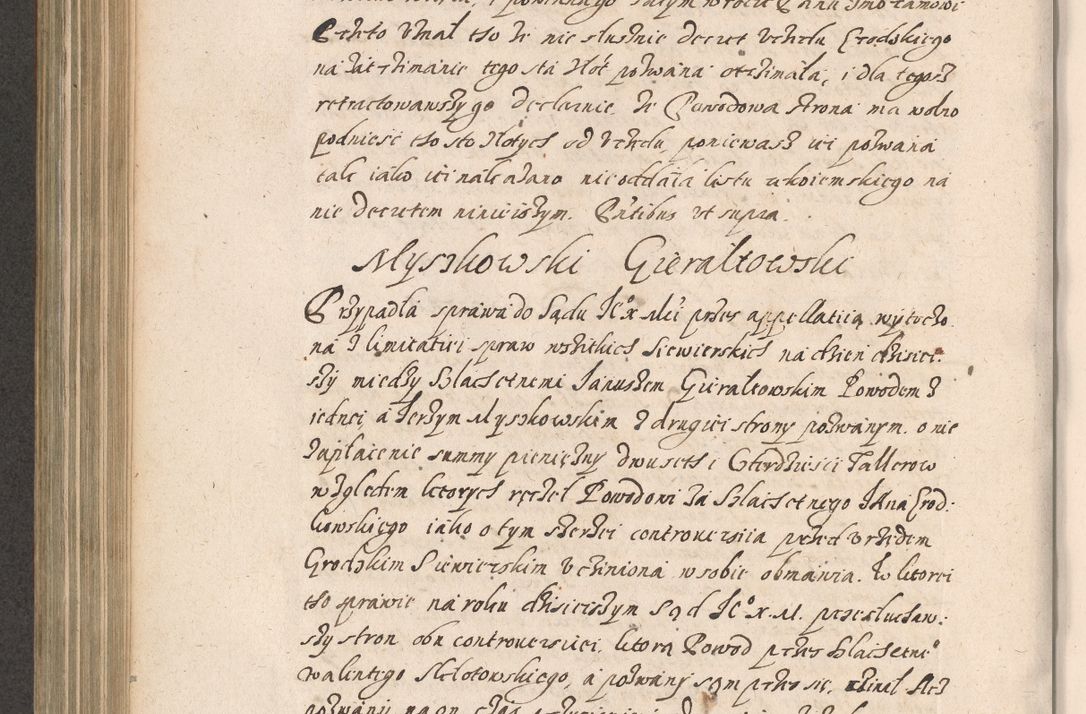 Przto Vznał tho że nie słusznie decret Vrzędu Grodskiego
na zatrzimanie tego sta złót pozwana otrzimała, i dla tegosz
retractowawszy go declaruie, że Powodowa strona ma wolno
podnieść tho sto złotych od Vrzędu, poniewasz iei pozwana
tak iako iei nakazano nie oddała listu zkoiemskiego na
nie decretem ninieiszym. Pñtibus vt supra.
Myszkowski Gierałtowski
Przypadła sprawa do Sądu Jº X Mći przes appellatiią wytoczo
na z limitatiei spraw wszitkich Siewierskich na dzień dzisiei:
szy miedzy Szlachetnemi Januszem Gierałtowskim Powodem z
iednei, a Jerzym Myszkowskim z drugiei strony pozwanym. o nie
zapłacenie summy pieniężny dwuseth i Cterdziesci Tallerow
względem ktorych ręczeł Powodowi za Szlachetnego Jana Grod:
kowskiego iako o tym szerzei controuersiia przed Vrzędem
Grodzkim Siewierskim Vcziniona w sobie obmawia. W ktorei
tho sprawie na roku dzisieiszym Sąd Jº X. M. przesłuchaw:
szy stron obu controuersiiei, ktorą Powod przes Szlachetnº
Walentego Szkłotowskiego, a pozwany sąm przes się, czinił Acz